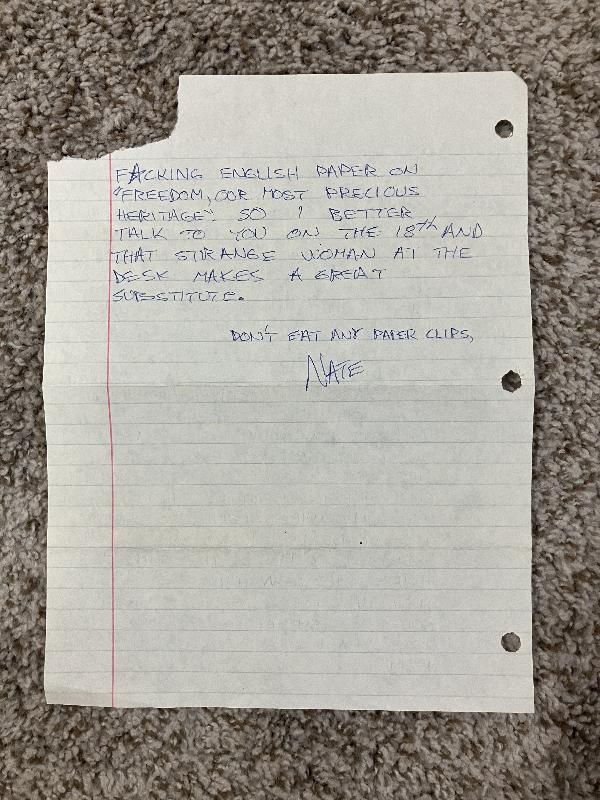 FACKING ENGLISH PAPER ON
"FREEDOM, OOR MOST PRECIOUS
HERITAGE" SO I BETTER
TALK TO YOU ON THE 18th AND
THAT STRANGE WOMAN AT THE
DESK MAKES A GREAT
SUBSTITUTE.
DON'T EAT ANY PAPER CLIPS,
NATE